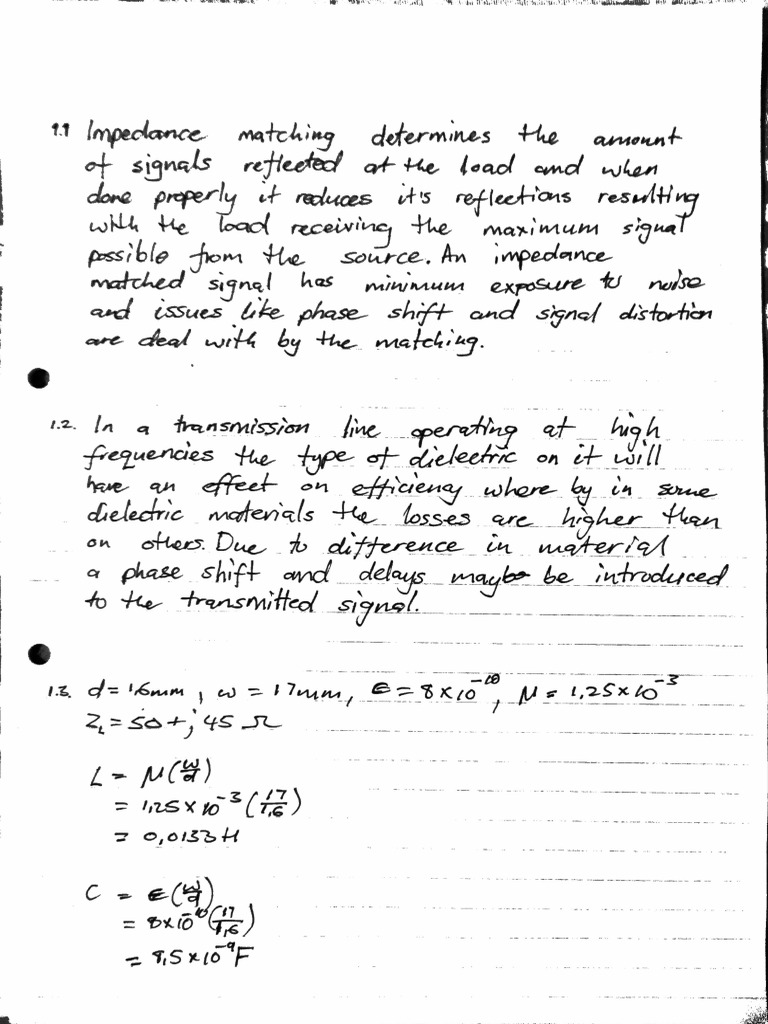 1.1 Impedance matching determines the amount
of signals reflected at the load and when
done properly it reduces it's reflections resulting
with the load receiving the maximum signal
possible from the source. An impedance
matched signal has minimum exposure to noise
and issues like phase shift and signal distortion
are deal with by the matching.
1.2. In a transmission line operating at high
frequencies the type of dielectric on it will
have an effect on efficiency where by in some
dielectric materials the losses are higher than
on others. Due to difference in material
a phase shift and delays maybe be introduced
to the transmitted signal.
1.3. d = 1.6mm, w = 17mm, ε = 8×10⁻¹⁰, μ = 1.25×10⁻³
Z_L = 50 + j 45 Ω
L = μ(w/d)
= 1,25×10⁻³(17/1,6)
= 0,0133H
C = ε(w/d)
= 8×10⁻¹⁰(17/1,6)
= 8,5×10⁻⁹F